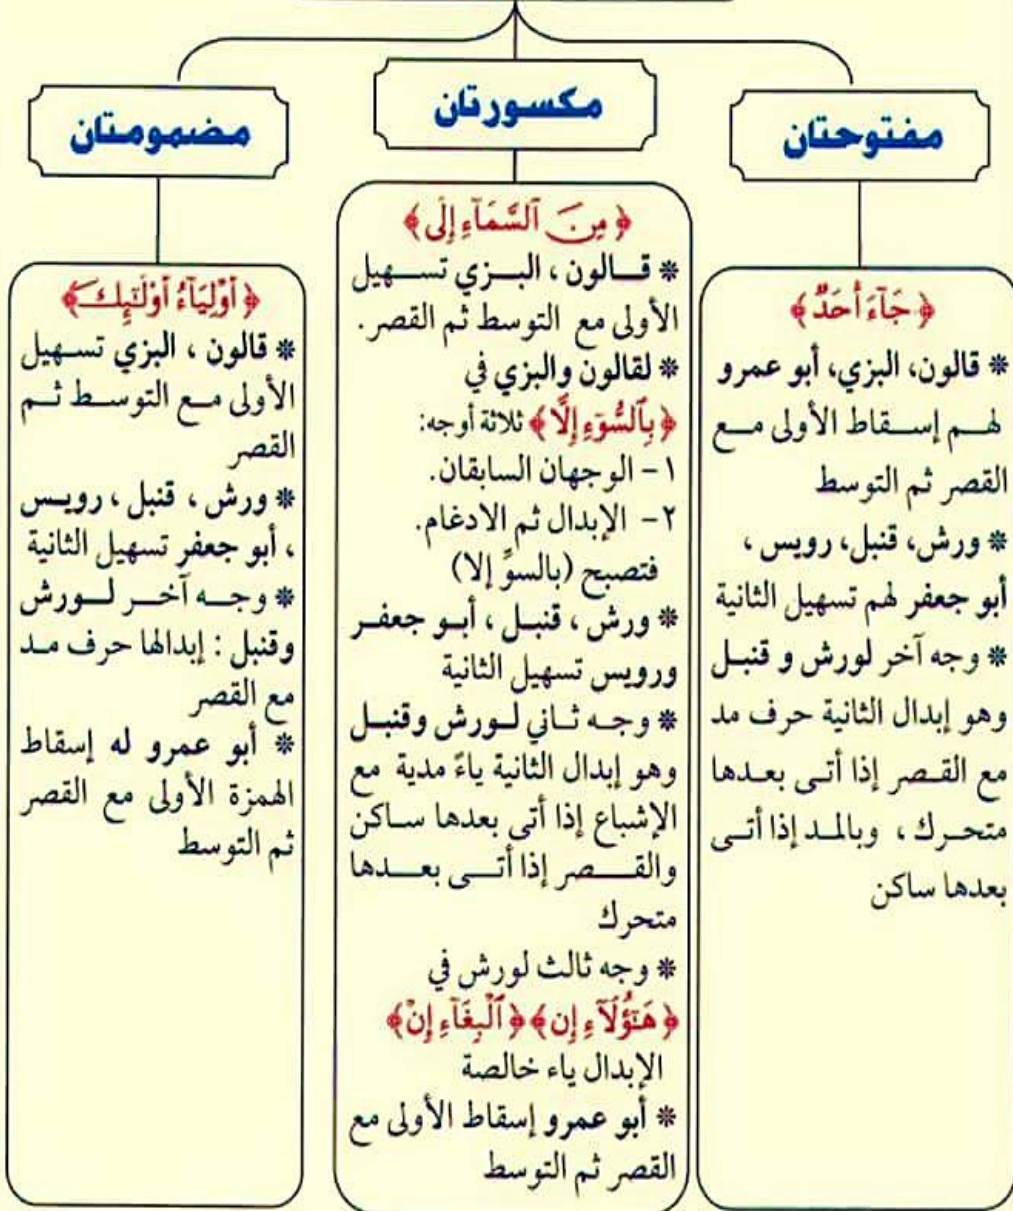 مفتوحتان
﴿جَآءَ أَحَدٌ﴾
* قالون، البزي، أبو عمرو
لهم إسقاط الأولى مع
القصر ثم التوسط
* ورش، قنبل، رويس،
أبو جعفر لهم تسهيل الثانية
* وجه آخر لورش و قنبل
وهو إبدال الثانية حرف مد
مع القصر إذا أتى بعدها
متحرك، وبالمد إذا أتى
بعدها ساكن
مكسورتان
﴿مِنَ ٱلسَّمَآءِ إِلَى﴾
* قالون، البزي تسهيل
الأولى مع التوسط ثم القصر.
* لقالون والبزي في
﴿بِٱلسُّوٓءِ إِلَّا﴾ ثلاثة أوجه:
١- الوجهان السابقان.
٢- الإبدال ثم الادغام.
فتصبح (بالسوِّ إلا)
* ورش، قنبل، أبو جعفر
ورويس تسهيل الثانية
* وجه ثاني لورش وقنبل
وهو إبدال الثانية ياءً مدية مع
الإشباع إذا أتى بعدها ساكن
والقصر إذا أتى بعدها
متحرك
* وجه ثالث لورش في
﴿هَٰٓؤُلَآءِ إِن﴾ ﴿ٱلْبِغَآءِ إِنْ﴾
الإبدال ياء خالصة
* أبو عمرو إسقاط الأولى مع
القصر ثم التوسط
مضمومتان
﴿أَوْلِيَآءُ أُوْلَٰٓئِكَ﴾
* قالون، البزي تسهيل
الأولى مع التوسط ثم
القصر
* ورش، قنبل، رويس
، أبو جعفر تسهيل الثانية
* وجه آخر لورش
وقنبل: إبدالها حرف مد
مع القصر
* أبو عمرو له إسقاط
الهمزة الأولى مع القصر
ثم التوسط